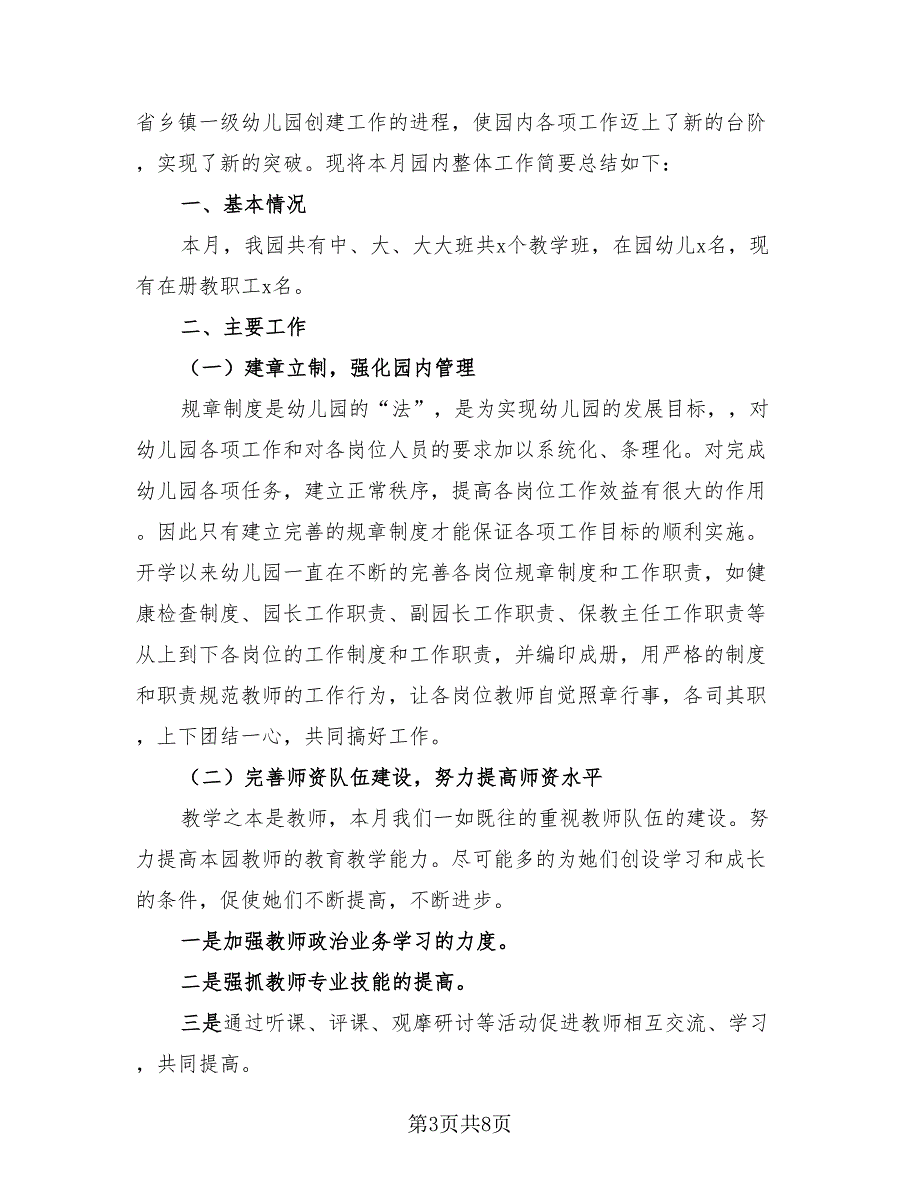 省乡镇一级幼儿园创建工作的进程，使园内各项工作迈上了新的台阶
，实现了新的突破。现将本月园内整体工作简要总结如下：
一、基本情况
本月，我园共有中、大、大大班共x个教学班，在园幼儿x名，现
有在册教职工x名。
二、主要工作
（一）建章立制，强化园内管理
规章制度是幼儿园的“法”，是为实现幼儿园的发展目标，，对
幼儿园各项工作和对各岗位人员的要求加以系统化、条理化。对完成
幼儿园各项任务，建立正常秩序，提高各岗位工作效益有很大的作用
。因此只有建立完善的规章制度才能保证各项工作目标的顺利实施。
开学以来幼儿园一直在不断的完善各岗位规章制度和工作职责，如健
康检查制度、园长工作职责、副园长工作职责、保教主任工作职责等
从上到下各岗位的工作制度和工作职责，并编印成册，用严格的制度
和职责规范教师的工作行为，让各岗位教师自觉照章行事，各司其职
，上下团结一心，共同搞好工作。
（二）完善师资队伍建设，努力提高师资水平
教学之本是教师，本月我们一如既往的重视教师队伍的建设。努
力提高本园教师的教育教学能力。尽可能多的为她们创设学习和成长
的条件，促使她们不断提高，不断进步。
一是加强教师政治业务学习的力度。
二是强抓教师专业技能的提高。
三是通过听课、评课、观摩研讨等活动促进教师相互交流、学习
，共同提高。
第3页共8页